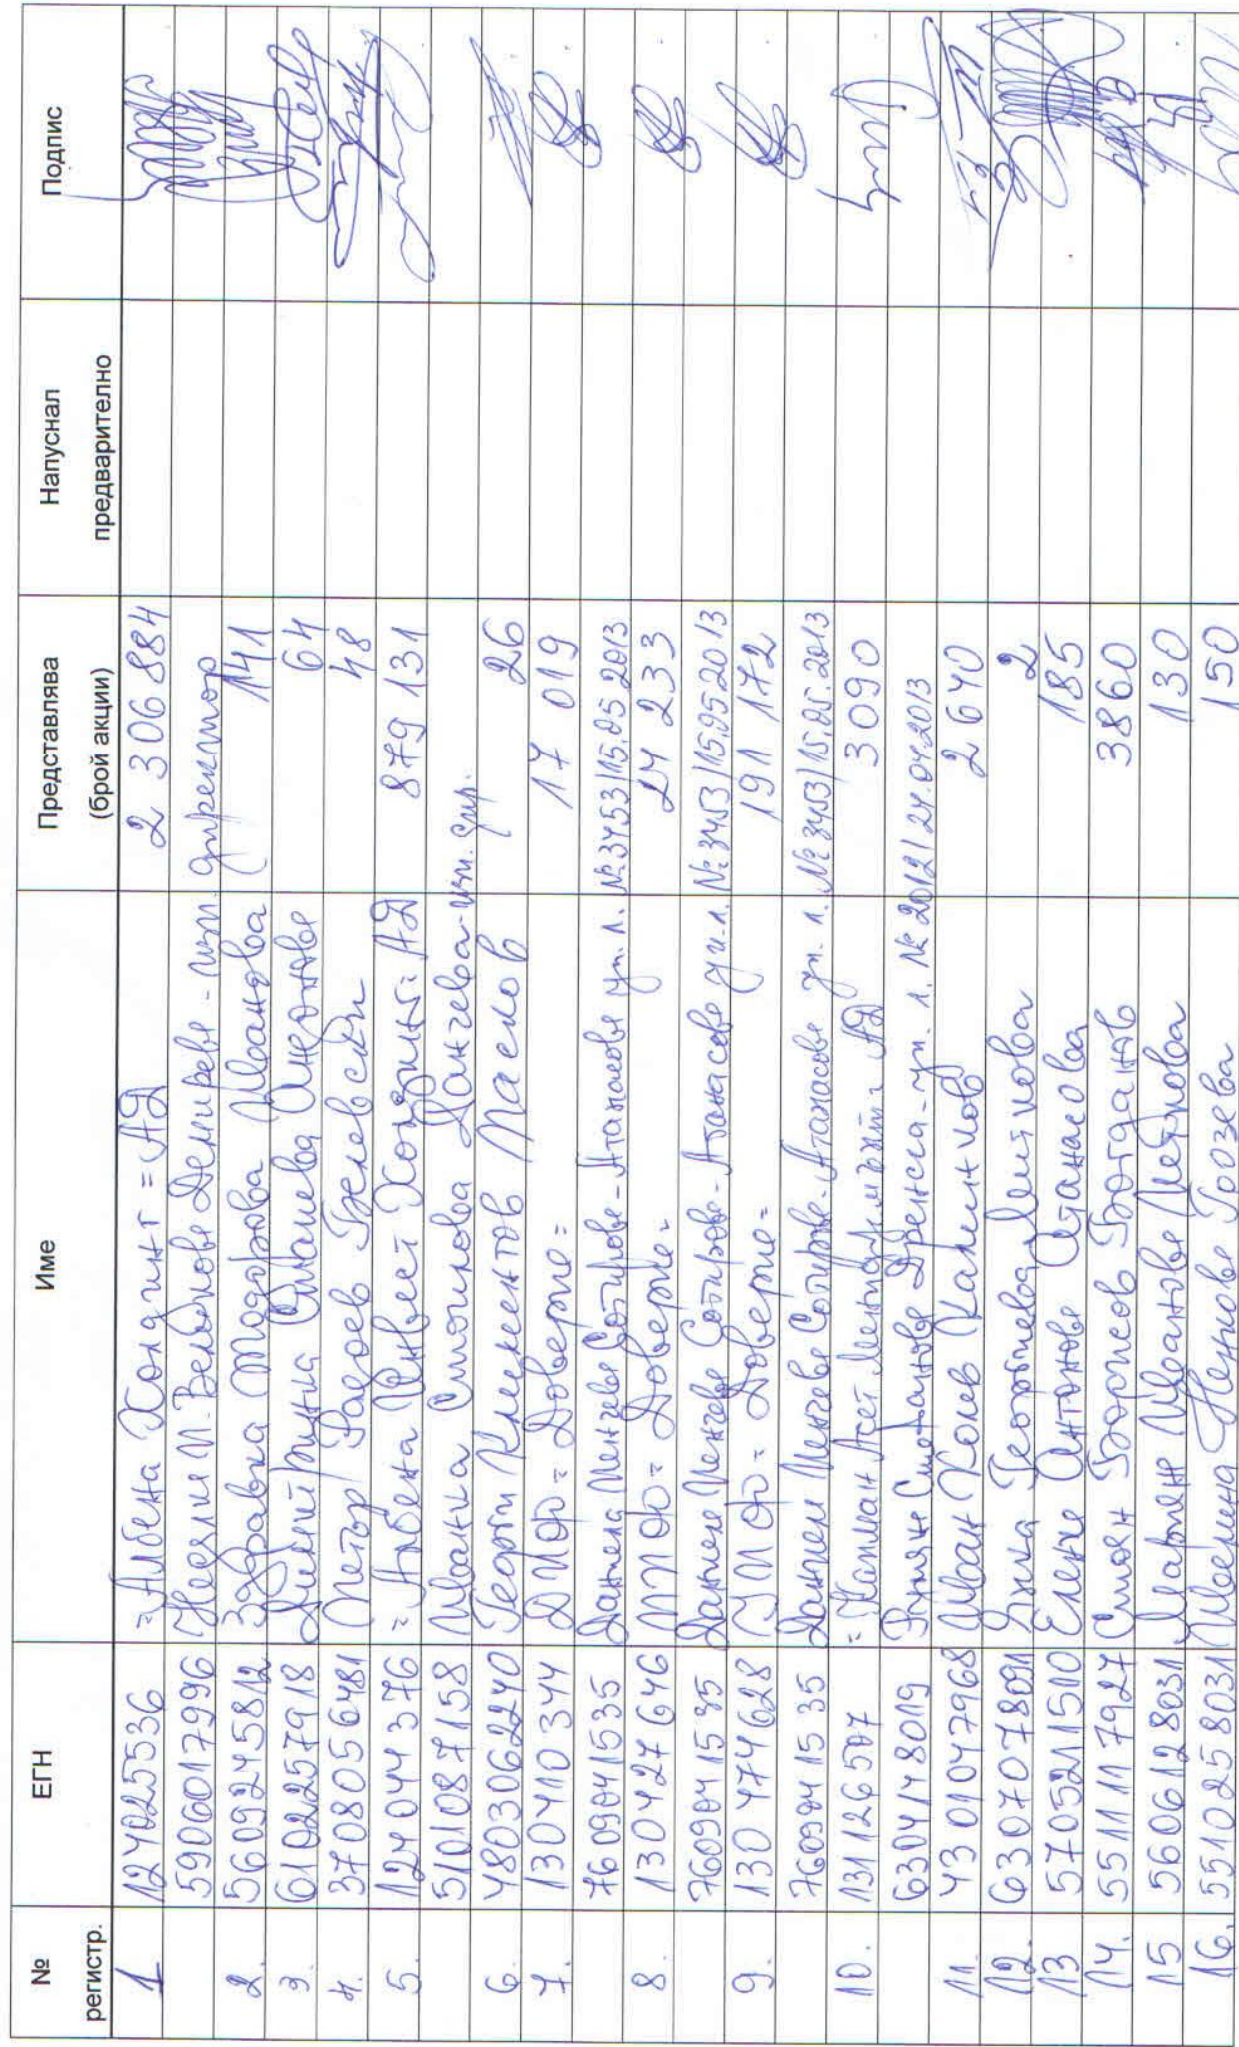 № регистр. ЕГН Име Представлява (брой акции) Напуснал предварително Подпис
1 124025536 "Албена Холдинг" АД 2 306 884
5906017996 М. Великова - изп. директор
2. 5609245812 Здравка Тодорова Иванова 141
3. 6102257918 Димитричка Симеонова 64
4. 3708056481 Петър Радоев Бжевски 48
5. 124044376 "Албена Инвест Холдинг" АД 879 131
5101087158 Иванка Стоилова Данчева - изп. дир.
6. 4803062240 Георги Климентов Маслов 26
7. 130410344 ДПФ "Доверие" 17 019
7609041535 Даниела Пенчева Сотирова-Атанасова уп. л. №3453/15.05.2013
8. 130427646 ППФ "Доверие" 24 233
7609041535 Даниела Пенчева Сотирова-Атанасова уп. л. №3453/15.05.2013
9. 130474628 УПФ "Доверие" 191 172
7609041535 Даниела Пенчева Сотирова-Атанасова уп. л. №3453/15.05.2013
10. 131126507 "Капман Асет Мениджмънт" АД 3090
6304148019 Румяна Стоянова Дренска - уп. л. № 2012/24.04.2013
11. 4301047968 Иван Колев Калинков 2 640
12. 6307078091 Янка Георгиева 2
13 5705211510 Елена Антонова Атанасова 185
14. 5511117927 Стоян Борисов Богданов 3860
15 5606128031 Марияна Иванова Петрова 130
16. 5510258031 Ивелина Ненкова Грозева 150